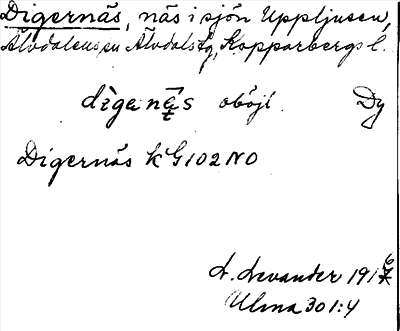 Digernäs, näs i sjön Uppljusen,
Älvdalens sn Älvdals tg, Kopparbergs l.
oböjl. Dy
Digernäs kG102NO
L. Levander 1916
Ulma 301:4